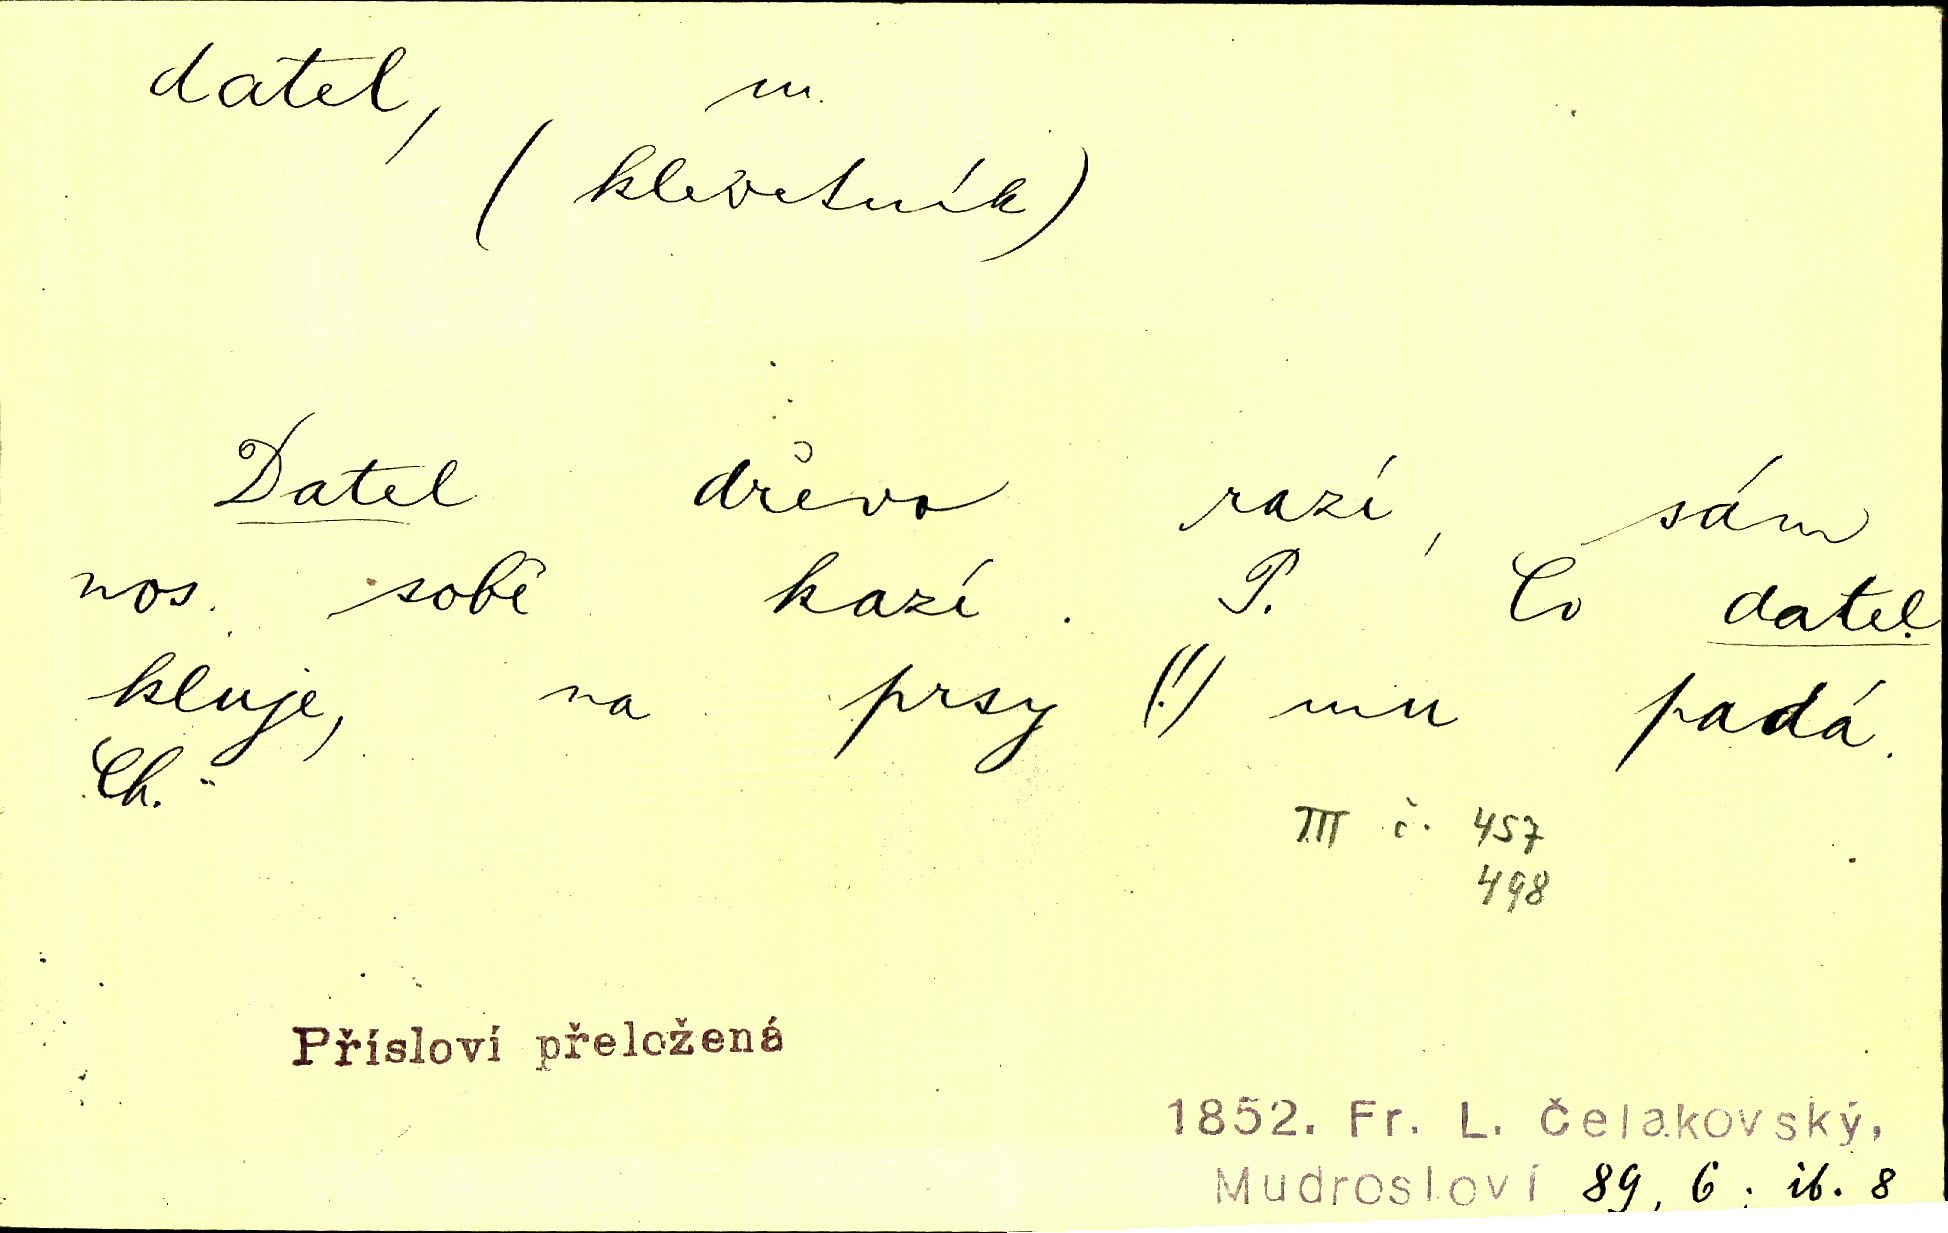 datel, m.
(klevetník)
Datel dřevo razí, sám
nos sobě kazí. P. Co datel
kluje, na prsy (!) mu padá.
Ch.
III č. 457
498
Přísloví přeložená
1852. Fr. L. Čelakovský,
Mudrosloví 89, 6; ib. 8